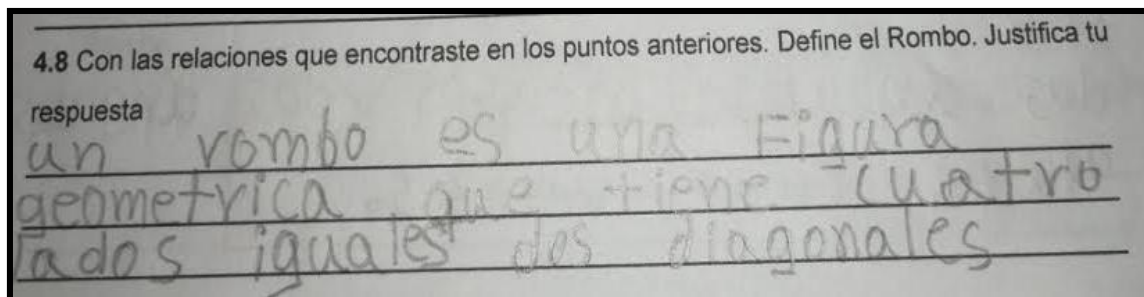 4.8 Con las relaciones que encontraste en los puntos anteriores. Define el Rombo. Justifica tu
respuesta
un rombo es una Figura
geometrica que tiene cuatro
lados iguales dos diagonales